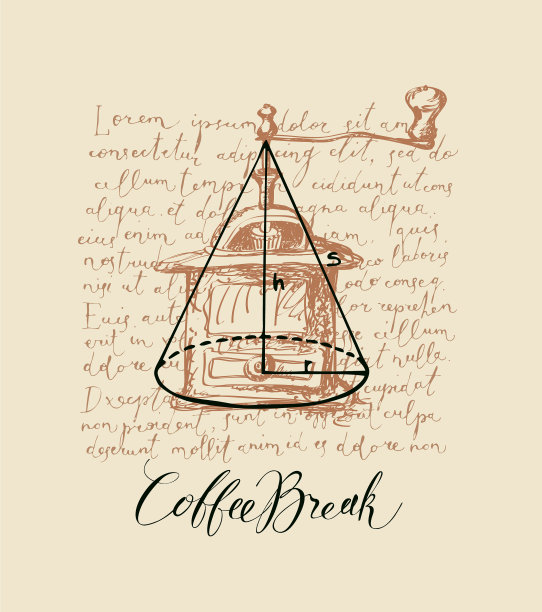 Lorem ipsum dolor sit am
consectetur adipiscing elit, sed do
cillum temp incididunt ut cons
aliqua et do agna aliqua.
eius enim ad iam, quis
nostrud co laboris
nisi ut ali odo conseq.
Euis aute lor reprehen
erit in v esse cillum
dolore eu giat nulla.
Dxcepta cupidat
non proident, sunt in culpa
deserunt mollit anim id es dolore non
s
h
r
Coffee Break